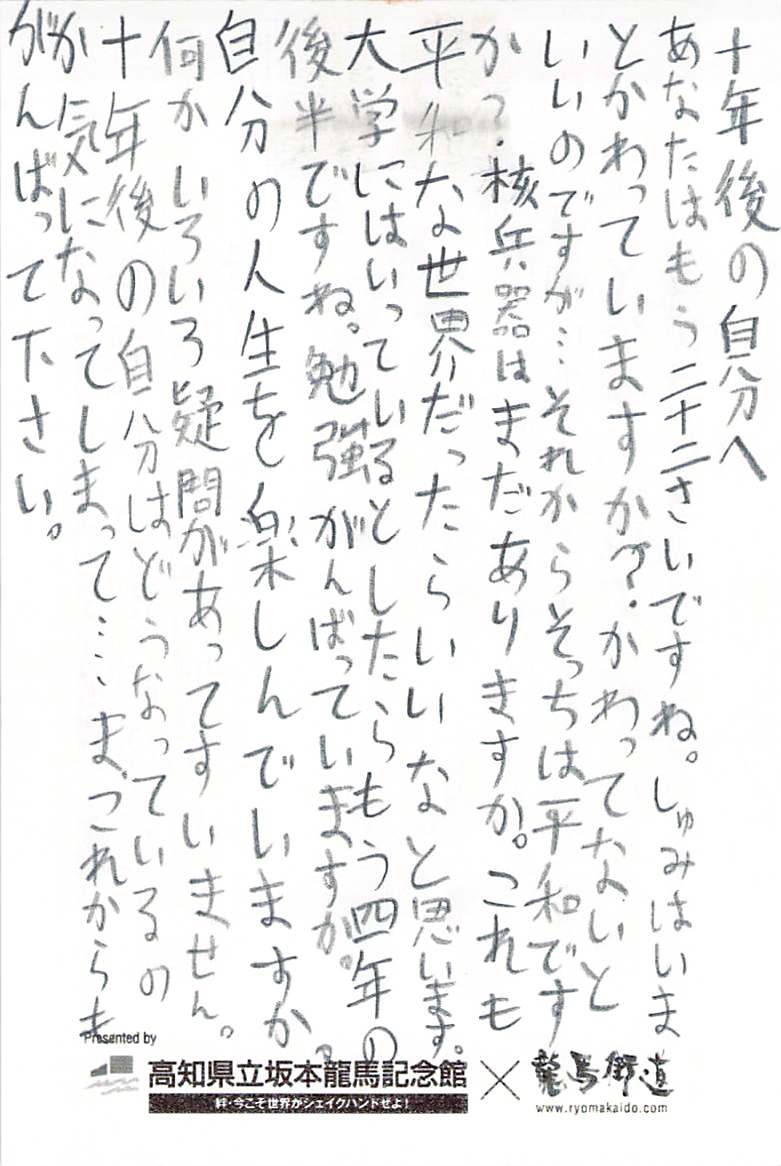 十年後の自分へ
あなたはもう二十二さいですね。しゅみはいま
とかわっていますか?かわってないと
いいのですが…それからそっちは平和です
か?核兵器はまだありますか。これも
平和な世界だったらいいなと思います。
大学にはいっているとしたらもう四年の
後半ですね。勉強がんばっていますか。
自分の人生を楽しんでいますか。
何かいろいろ疑問があってすいません。
十年後の自分はどうなっているの
か気になってしまって…ま、これからも
がんばって下さい。
Presented by
高知県立坂本龍馬記念館×龍馬街道
絆・今こそ世界がシェイクハンドせよ!
www.ryomakaido.com